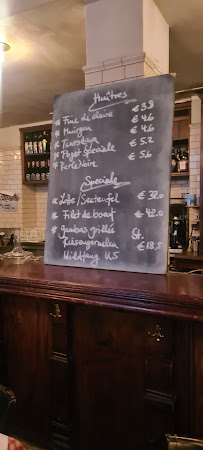 Huîtres
* Fine de claire € 3.8
* Muirgen € 4.6
* Tsarskaya € 4.6
* Pogot Speciale € 5.2
* Perle Noire € 5.6
Speciale
* Lotte/Seeteufel € 32.0
* Filet de boeuf € 42.0
* Gambas grillée St.
Riesengarnelen € 18.5
Wildfang U5